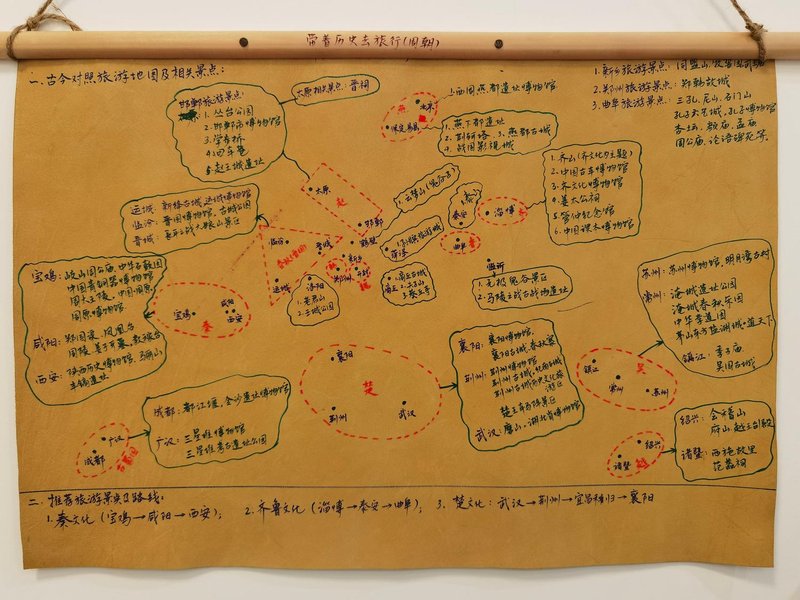 带着历史去旅行(周朝)
一、古今对照旅游地图及相关景点:
1. 新乡旅游景点: 同盟山,
2. 郑州旅游景点: 郑韩故城
3. 曲阜旅游景点: 三孔, 尼山, 石门山
孔子六艺城, 孔子博物馆
孟庙
周公庙, 论语碑苑等.
邯郸旅游景点:
1. 丛台公园
2. 邯郸市博物馆
3. 学步桥
4. 回车巷
5. 赵王城遗址
太原相关景点: 晋祠
燕
北京
保定易县
西周燕都遗址博物馆
1. 燕下都遗址
2. 荆轲塔
3. 燕都古城
4. 战国影视城
1. 齐山(齐文化为主题)
2. 中国古车博物馆
3. 齐文化博物馆
4. 姜太公祠
5. 管仲纪念馆
6. 中国课本博物馆
运城:
临汾: 晋国博物馆,
晋城:
太原
赵
邯郸
鹤壁
1. 云梦山(鬼谷子)
泰安
泰山
淄博
齐
曲阜
鲁
临汾
晋城
运城
新乡
郑州
韩
开封
魏
菏泽
洛阳
1. 老君山
2. 王城公园
商丘
商丘古城
临沂
1. 无极鬼谷景区
2. 马陵之战古战场遗址
宝鸡: 岐山周公庙, 中华石鼓园
中国青铜器博物馆
周大王陵, 中国周原
周原博物馆
咸阳: 郑国渠, 凤凰台
西安: 陕西历史博物馆,
宝鸡
咸阳
西安
秦
成都: 都江堰, 金沙遗址博物馆
广汉: 三星堆博物馆
三星堆考古遗址公园
广汉
成都
古蜀国
襄阳
荆州
武汉
楚
襄阳: 襄阳博物馆,
襄阳古城, 春秋寨
荆州: 荆州博物馆
武汉: 磨山, 湖北省博物馆
苏州: 苏州博物馆, 明月湾古村
常州: 淹城遗址公园
淹城春秋乐园
中华孝道园
镇江: 季子庙
吴国古城
镇江
常州
苏州
吴
绍兴: 会稽山
府山, 越王台殿
诸暨: 西施故里
范蠡祠
绍兴
诸暨
越
二、推荐旅游景点及路线:
1. 秦文化 (宝鸡→咸阳→西安); 2. 齐鲁文化 (淄博→泰安→曲阜); 3. 楚文化: 武汉→荆州→宜昌秭归→襄阳